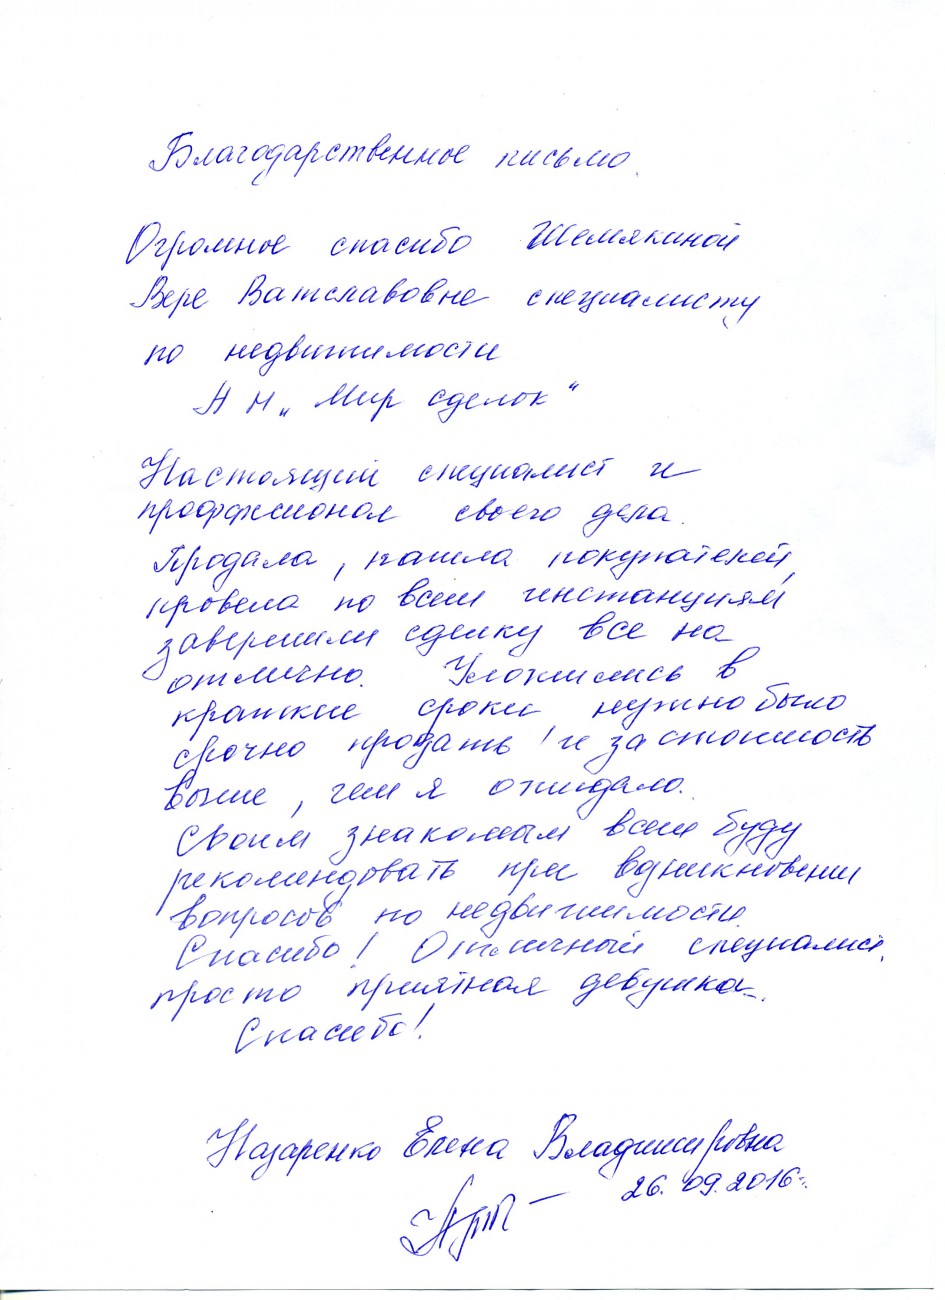 Благодарственное письмо.
Огромное спасибо Шемякиной
Вере Ватславовне специалисту
по недвижимости
АН „Мир сделок“
Настоящий специалист и
профессионал своего дела.
Продала, нашла покупателей,
провела по всем инстанциям
завершили сделку все на
отлично. Уложились в
краткие сроки нужно было
срочно продать и за стоимость
выше, чем я ожидала.
Своим знакомым всем буду
рекомендовать при возникновении
вопросов по недвижимости.
Спасибо! Отличный специалист,
просто приятная девушка.
Спасибо!
Назаренко Елена Владимировна
26.09.2016г.